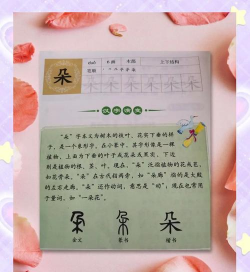 朵
duǒ 6画 木部 上下结构
笔顺
朵 朵 朵 朵 朵 朵
汉字演变
“朵”字本义为树木的枝叶、花实下垂的样
子，是一个象形字，在小篆中，其字形像是一棵
植物，上面为下垂的叶子或花朵或果实，下边
则是植物的根、茎、叶。现在，“朵”泛指植物的花或苞，
如花骨朵。“朵”在古代指两旁，如“朵廊”指的是大殿
的左右走廊。“朵”还作动词，意思是“动”，现在也常用
于量词，如“一朵花”。
朵 朵 朵
金文 篆书 楷书